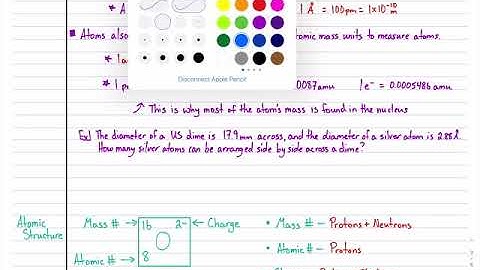 * A
1 Å = 100pm = 1×10⁻¹⁰ m
Atoms also
omic mass units to measure atoms.
* 1 a
* 1 p
0087amu 1e⁻ = 0.0005486 amu
Disconnect Apple Pencil
This is why most of the atom's mass is found in the nucleus
Ex) The diameter of a US dime is 17.9mm across, and the diameter of a silver atom is 2.88Å.
How many silver atoms can be arranged side by side across a dime?
Atomic Structure
Mass # → 16 2- ← Charge
O
Atomic # → 8
• Mass # – Protons + Neutrons
• Atomic # – Protons